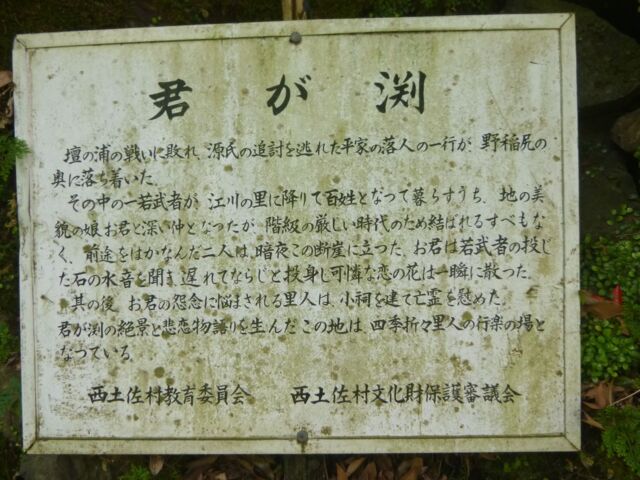 君が渕
壇の浦の戦いに敗れ、源氏の追討を逃れた平家の落人の一行が、野稲尻の
奥に落ち着いた。
その中の一若武者が、江川の里に降りて百姓となって暮らすうち、地の美
貌の娘お君と深い仲となったが、階級の厳しい時代のため結ばれるすべもな
く、前途をはかなんだ二人は、暗夜この断崖に立った。お君は若武者の投じ
た石の水音を聞き、遅れてならじと投身し可憐な恋の花は一瞬に散った。
其の後、お君の怨念に悩まされる里人は、小祠を建て亡霊を慰めた。
君が渕の絶景と悲恋物語りを生んだこの地は、四季折々里人の行楽の場と
なっている。
西土佐村教育委員会　西土佐村文化財保護審議会